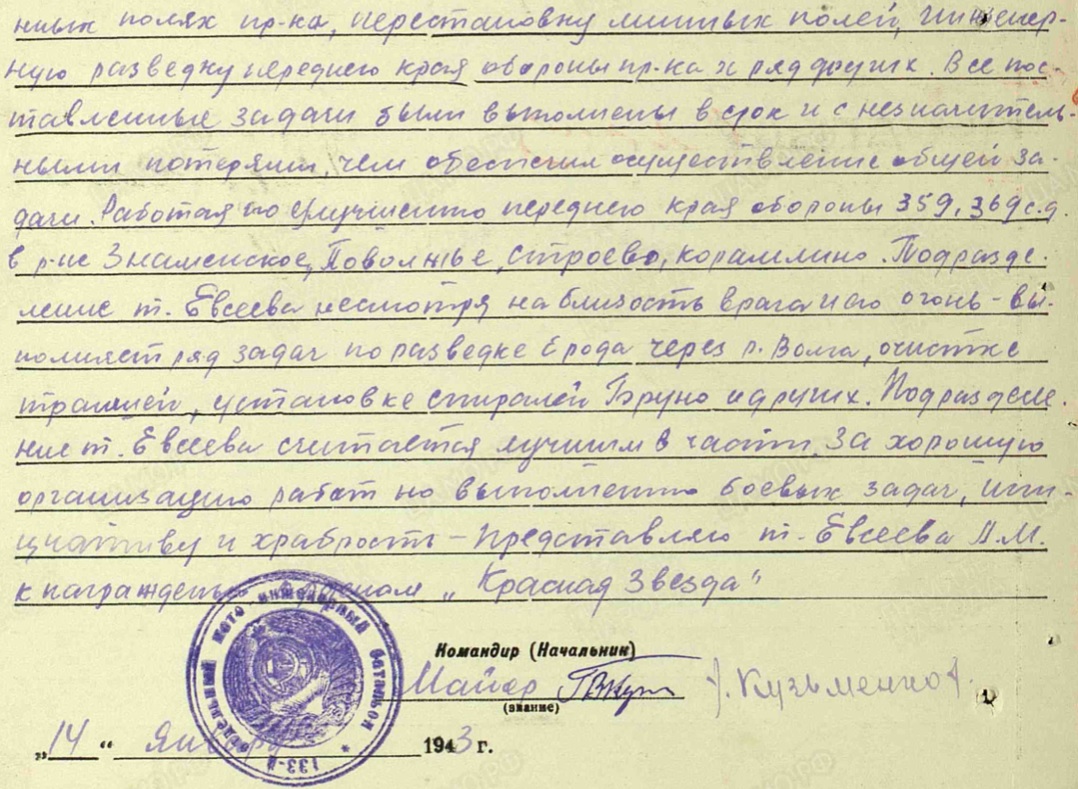 нных полях пр-ка, перестановку минных полей, инженер-
ную разведку переднего края обороны пр-ка и ряд других. Все пос-
тавленные задачи были выполнены в срок и с незначитель-
ными потерями, чем обеспечил осуществление общей за-
дачи. Работая по улучшению переднего края обороны 359, 369 с.д.
в р-не Знаменское, Поволжье, Строево, Корамлино. Подразде-
ление т. Евсеева несмотря на близость врага и его огонь - вы-
полняет ряд задач по разведке брода через р. Волга, очистке
траншей, установке спиралей Бруно и других. Подразделе-
ние т. Евсеева считается лучшим в части. За хорошую
организацию работ по выполнению боевых задач, ини-
циативу и храбрость - Представляю т. Евсеева А.М.
к награждению орденом „Красная Звезда"
Командир (Начальник)
Майор /. Кузьменко /.
(звание)
„14" Января 1943 г.
133-й отдельный мото инженерный батальон